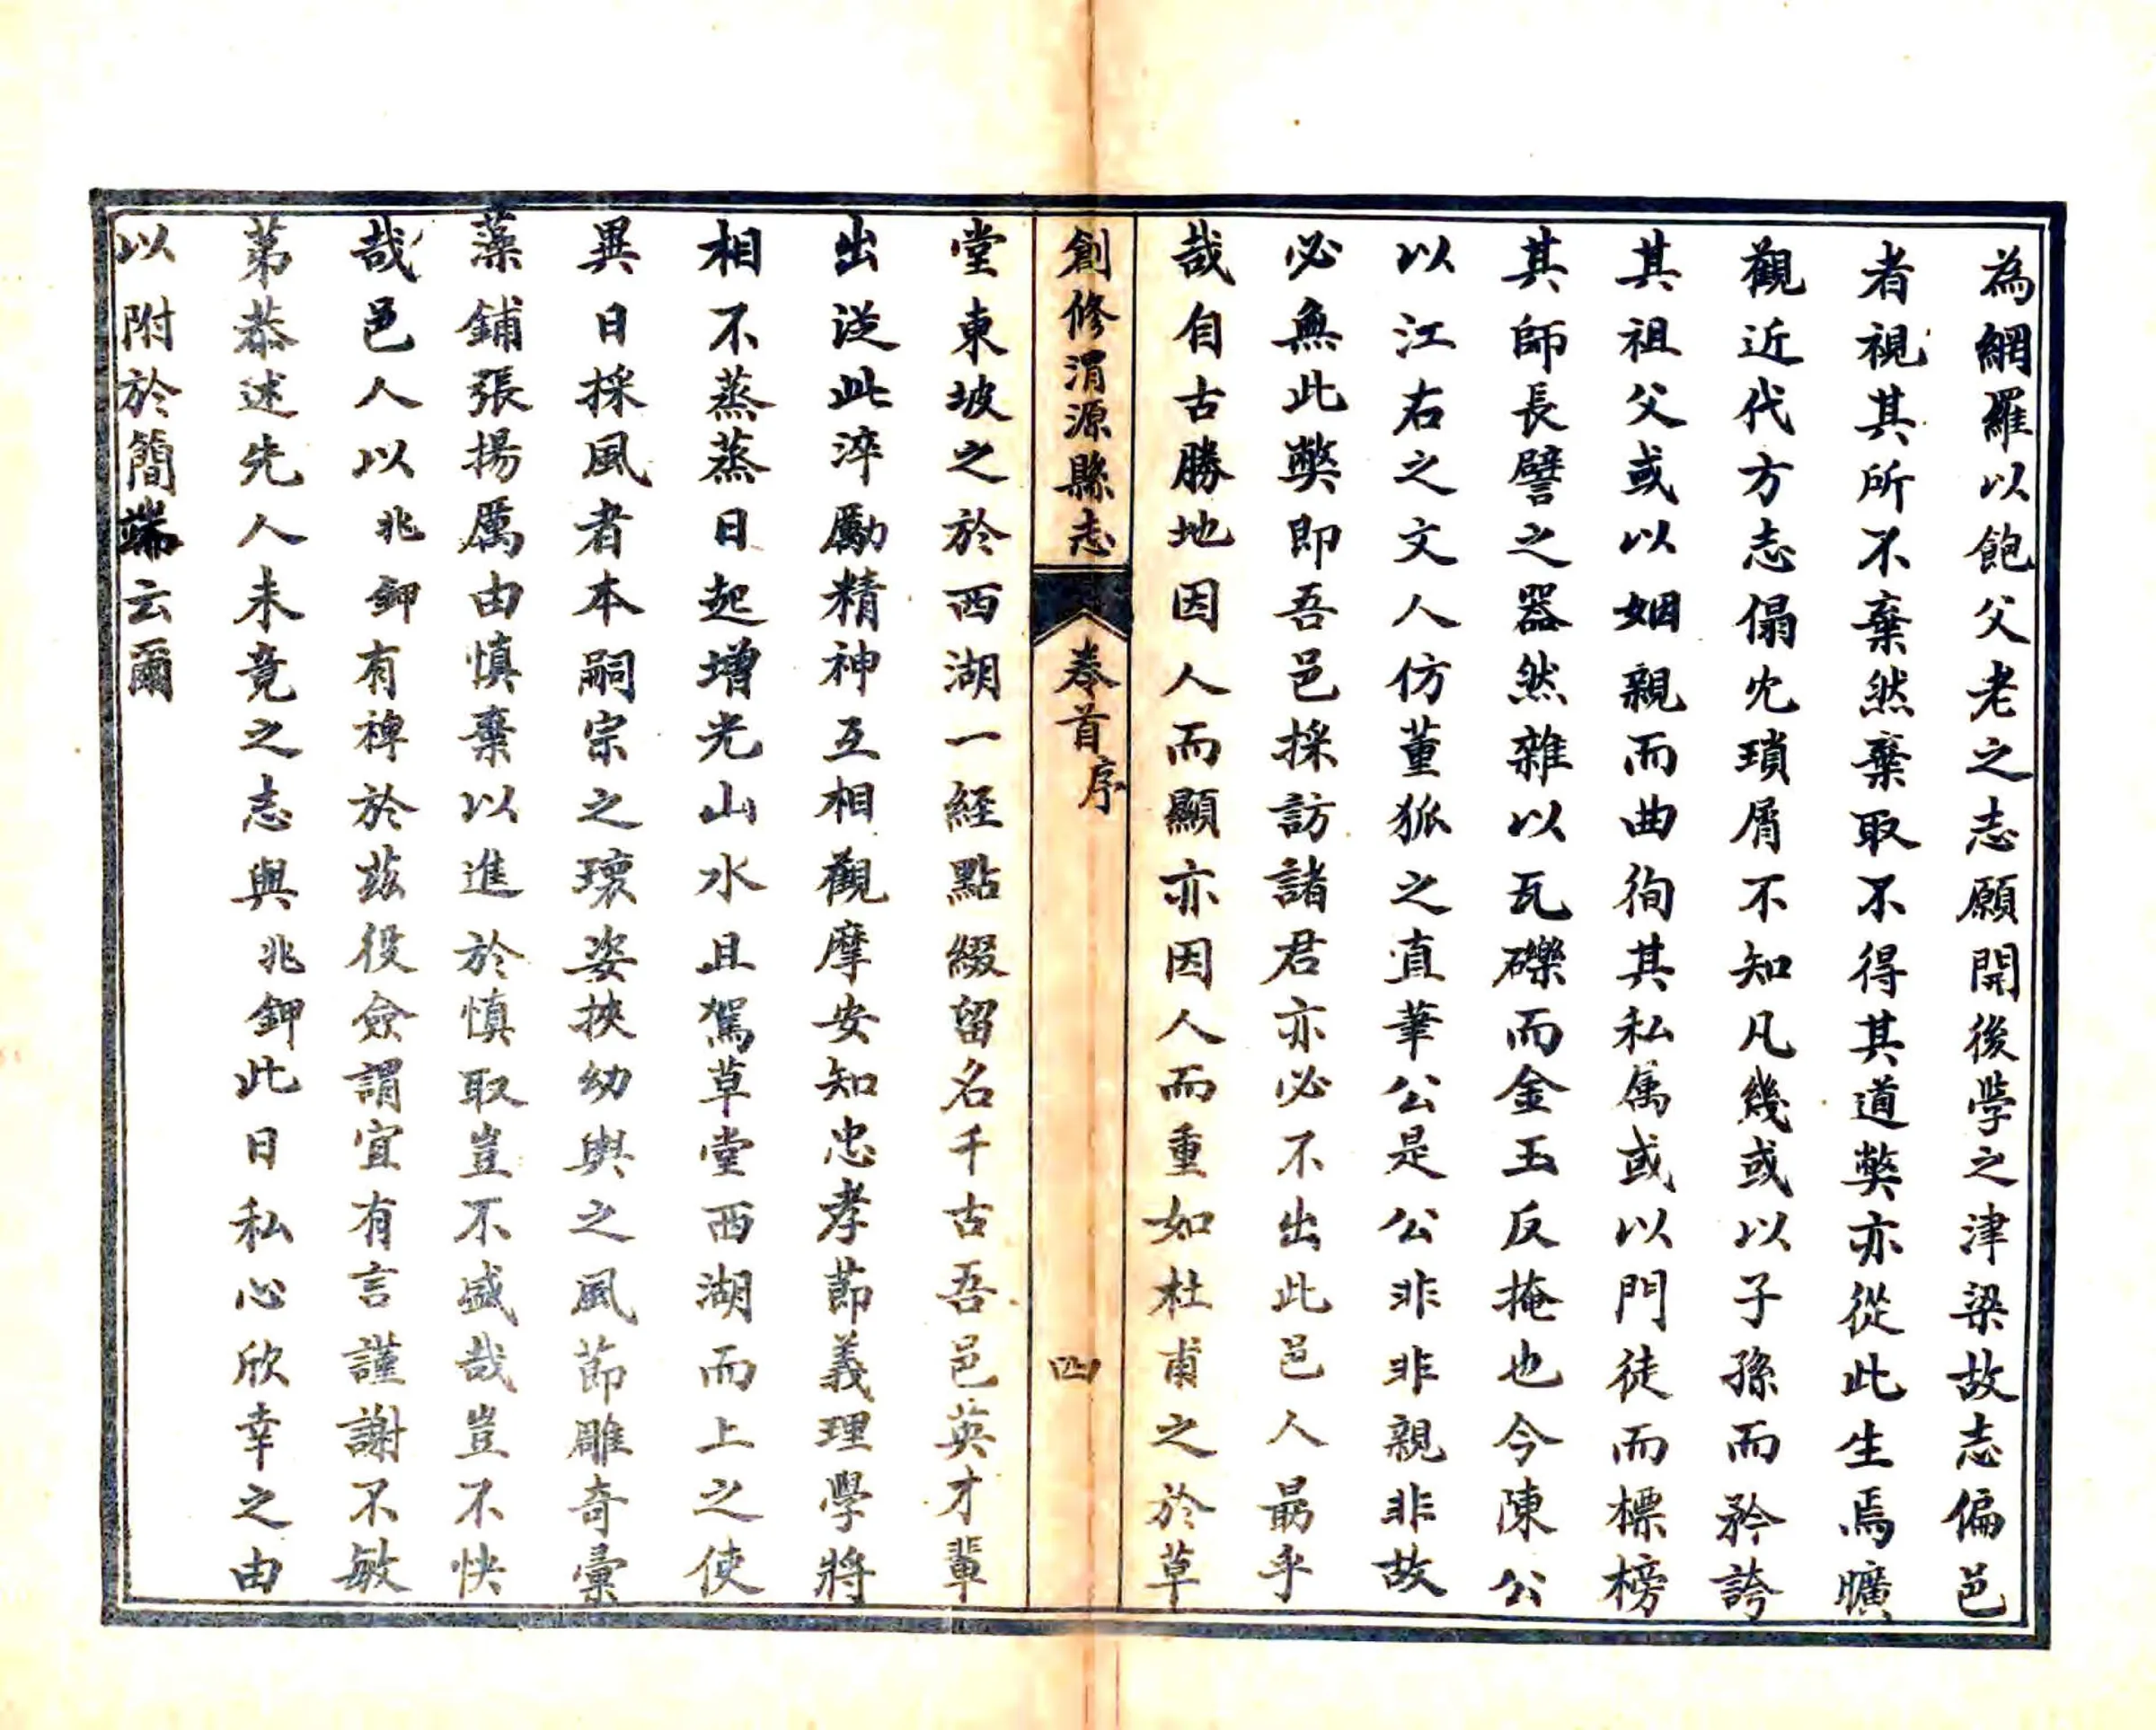 為網羅以飽父老之志願開後學之津梁故志偏邑
者視其所不棄然棄取不得其道獘亦從此生焉曠
觀近代方志傝冗瑣屑不知凡幾或以子孫而矜誇
其祖父或以姻親而曲徇其私属或以門徒而標榜
其師長譬之器然雜以瓦礫而金玉反掩也今陳公
以江右之文人仿董狐之直筆公是公非非親非故
必無此獘即吾邑採訪諸君亦必不出此邑人勗乎
哉自古勝地因人而顯亦因人而重如杜甫之於草
創修渭源縣志 卷首 序 四
堂東坡之於西湖一經點綴留名千古吾邑英才輩
出從此淬勵精神互相觀摩安知忠孝節義理學將
相不蒸蒸日起增光山水且駕草堂西湖而上之使
異日採風者本嗣宗之瓌姿挾幼輿之風節雕奇彙
藻鋪張揚厲由慎棄以進於慎取豈不盛哉豈不快
哉邑人以兆鉀有裨於茲役僉謂宜有言謹謝不敏
第恭述先人未竟之志與兆鉀此日私心欣幸之由
以附於簡端云爾